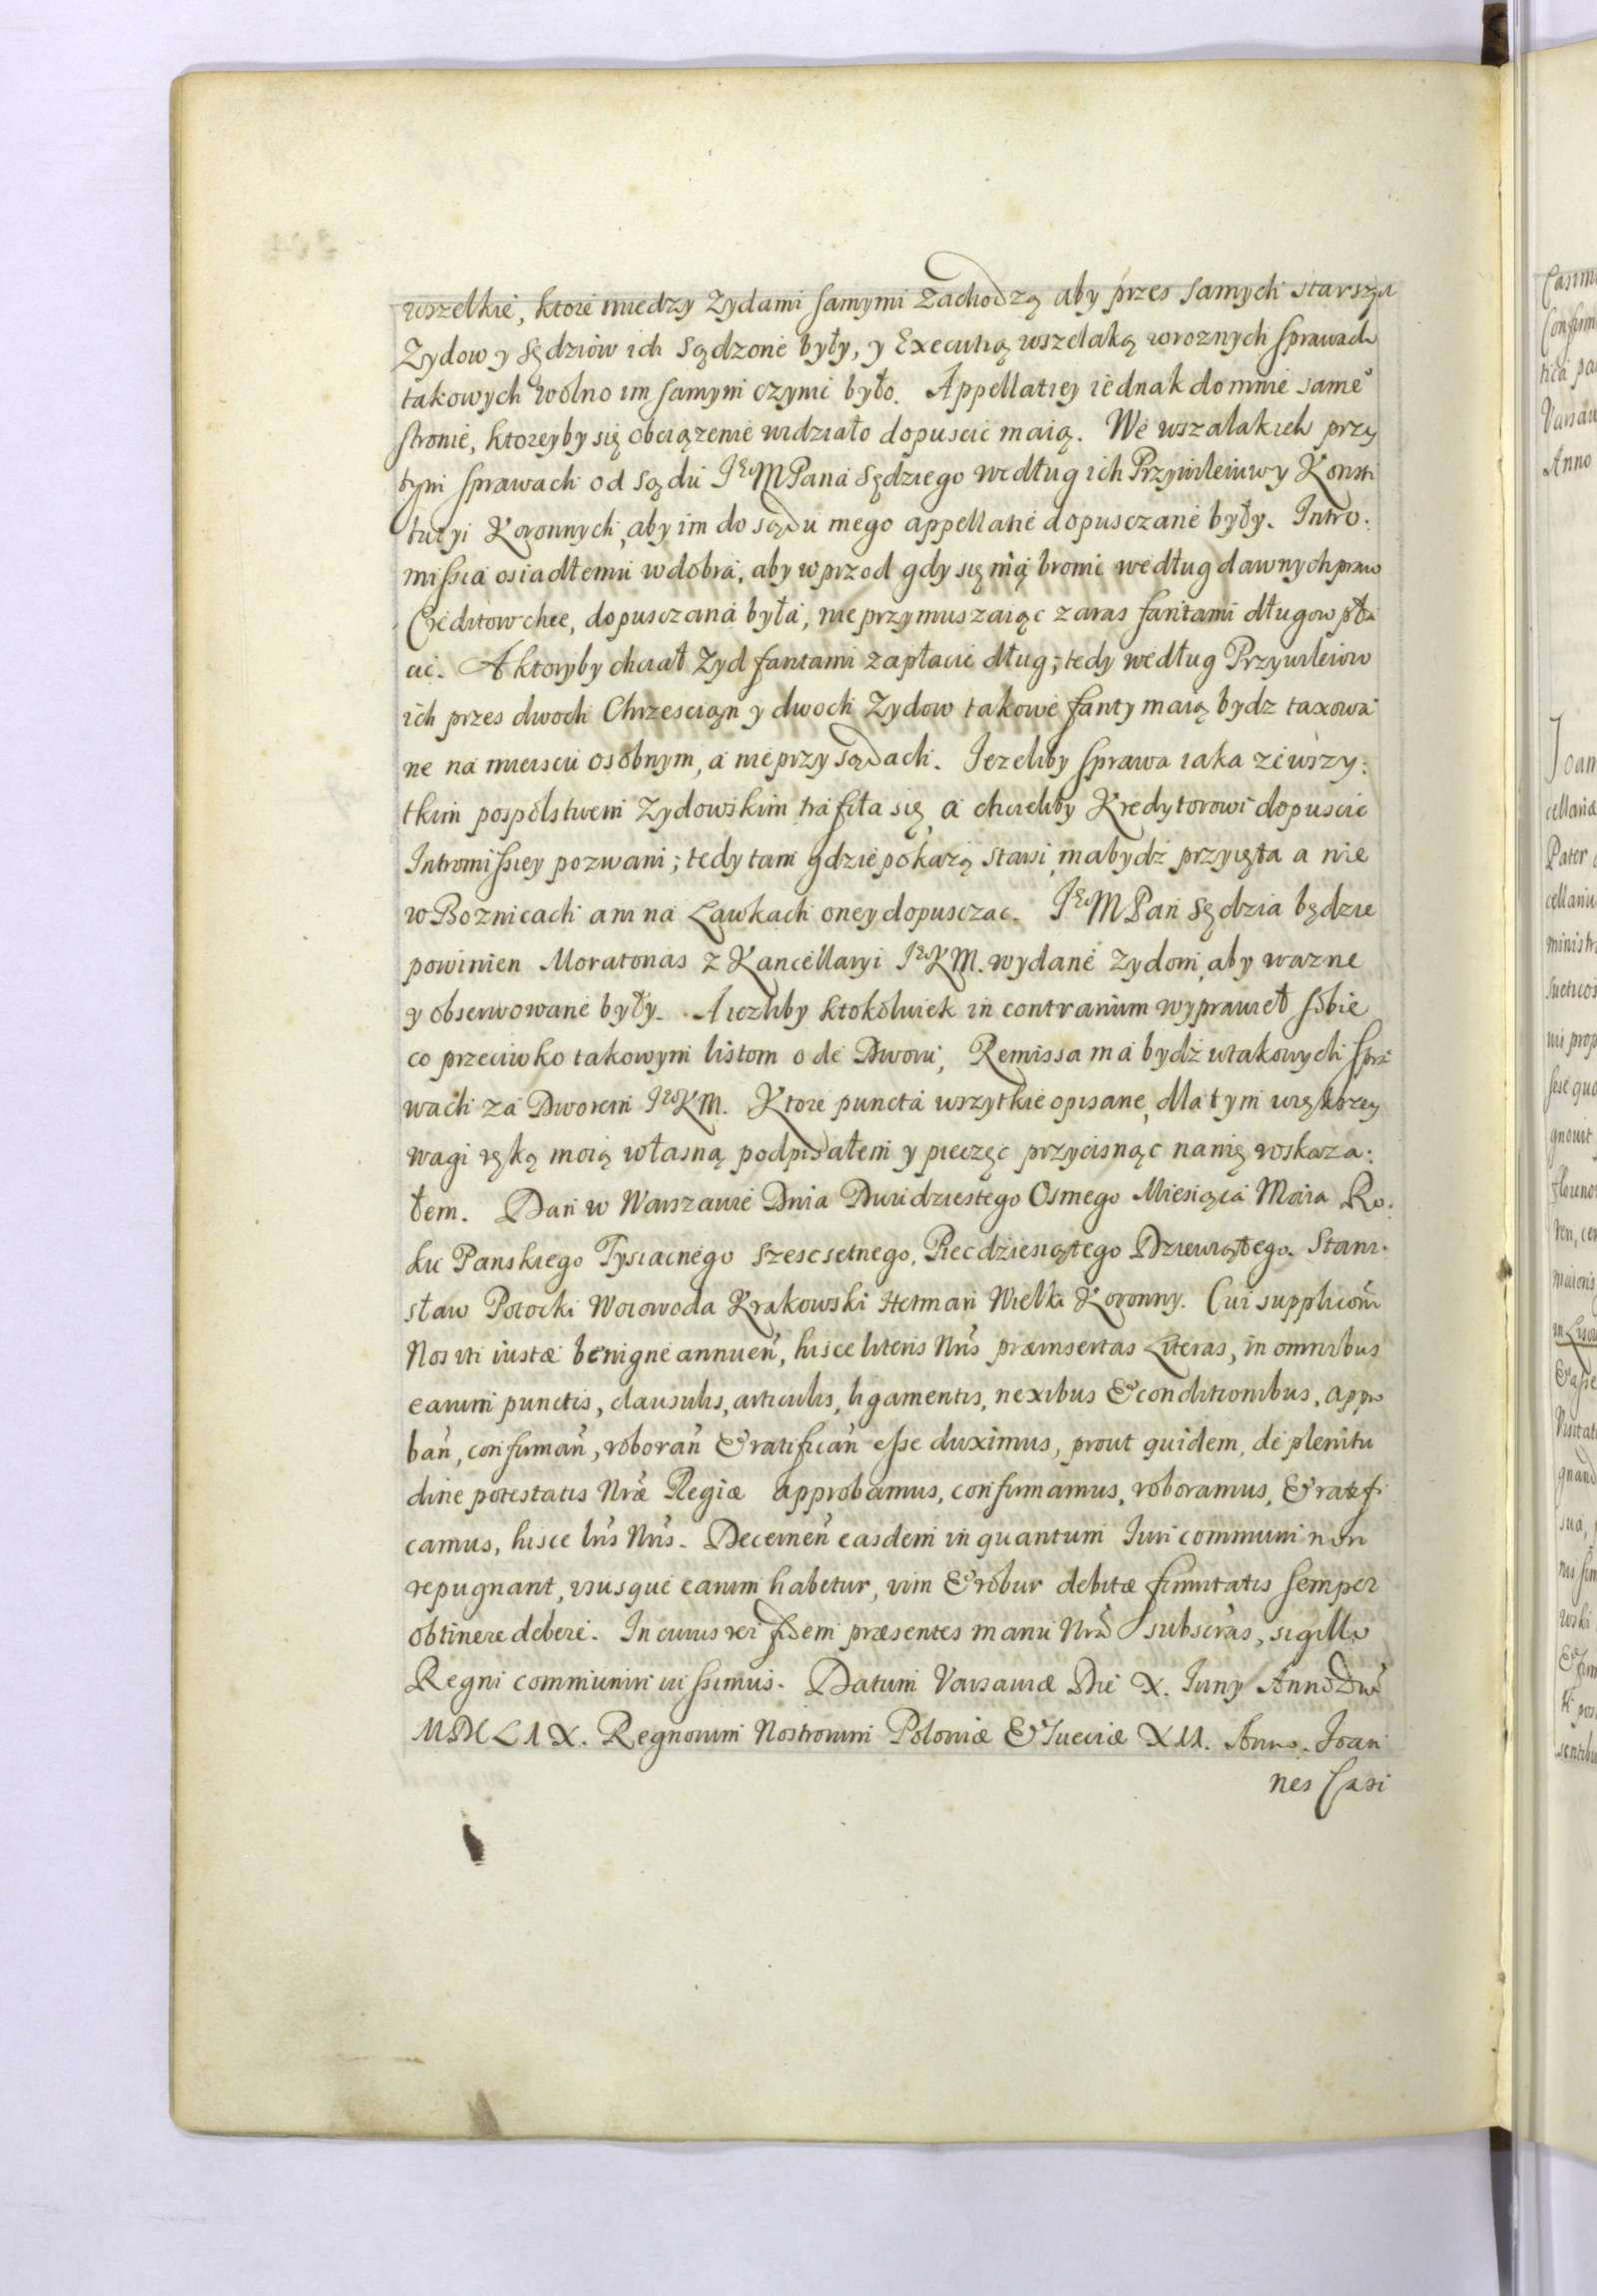 wszelkie, ktore miedzy Zydami samymi zachodzą aby przes samych starszy
Zydow y Sędziow ich Sądzone były, y Executią wszelaką w roznych sprawach
takowych wolno im samym czynić było. Appellatiey iednak do mnie same
stronie, ktoreyby się obciązenie widziało dopuscic maią. We wszalakich przy
tym sprawach od Sądu JeM Pana Sędziego według ich Przywileiuw y Konsti
tucyi Koronnych, aby im do sądu mego appellatie dopusczane były. Intro:
missia osiadłemu w dobra, aby w przod gdy się nią bronić według dawnych praw
Creditow chce, dopusczana była, nie przymuszaiąc zaras fantami długow pła
cić. A ktoryby chciał Zyd fantami zapłacić dług; tedy według Przywileiow
ich przes dwoch Chrzescian y dwoch Zydow takowe fanty maią bydz taxowa
ne na mieiscu osobnym, a nie przy sądach. Iezeliby sprawa iaka ze wszy:
tkim pospolstwem Zydowskim trafiła się, a chcieliby Kredytorowi dopuscic
Intromissiey pozwani; tedy tam gdzie pokażą starsi, ma bydź przyięta a nie
w Boznicach ani na Ławkach oney dopusczac. JeM Pan Sędzia będzie
powinien Moratorias z Kancellaryi JKM. wydane Zydom, aby wazne
y obserwowane były. A iezliby ktokolwiek in contrarium wyprawieł sobie
co przeciwko takowym listom ode Dworu, Remissa ma bydź w takowych spra
wach za Dworem JKM. Ktore puncta wszytkie opisane, dla tym większey
wagi ręką moią własną podpisałem y pieczęc przycisnąc na nię roskaza:
łem. Dan w Warszawie Dnia Dwidziestego Osmego Miesiąca Maia Ro:
ku Panskiego Tysiacnego Szescsetnego, Piecdziesiątego Dziewiątego. Stani:
sław Potocki Woiowoda Krakowski Hetman Wielki Koronny. Cui suppliconi
Nos uti iustæ benigne annuen, hisce literis Nris præinsertas Literas, in omnibus
earum punctis, clausulis, articulis, ligamentis, nexibus & conditionibus, appro
ban, confirman, roboran & ratifican esse duximus, prout quidem, de plenitu
dine potestatis Nræ Regiæ approbamus, confirmamus, roboramus, & ratifi
camus, hisce lris Nris. Decernen easdem in quantum Iuri communi non
repugnant, ususque earum habetur, vim & robur debitæ firmitatis semper
obtinere debere. In cuius rei fidem præsentes manu Nra subscras, sigillo
Regni communiri iussimus. Datum Varsaviæ Die X. Iuny Anno Dni
MDCLIX. Regnorum Nostrorum Poloniæ & Sueciæ XII. Anno. Joan
nes Casi